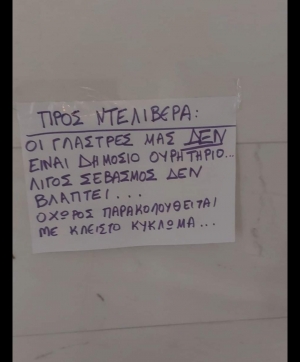 ΠΡΟΣ ΝΤΕΛΙΒΕΡΑ:
ΟΙ ΓΛΑΣΤΡΕΣ ΜΑΣ ΔΕΝ
ΕΙΝΑΙ ΔΗΜΟΣΙΟ ΟΥΡΗΤΗΡΙΟ...
ΛΙΓΟΣ ΣΕΒΑΣΜΟΣ ΔΕΝ
ΒΛΑΠΤΕΙ...
Ο ΧΩΡΟΣ ΠΑΡΑΚΟΛΟΥΘΕΙΤΑΙ
ΜΕ ΚΛΕΙΣΤΟ ΚΥΚΛΩΜΑ...